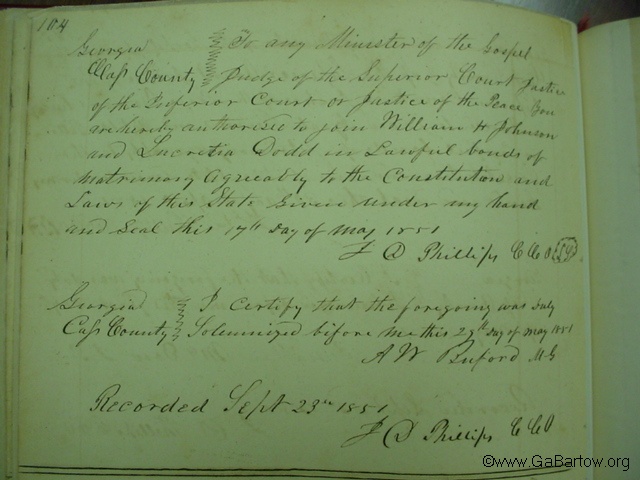 104
Georgia } To any Minister of the Gospel
Cass County } Judge of the Superior Court Justice
of the Inferior Court or Justice of the Peace You
are hereby authorised to join William H Johnson
and Lucretia Dodd in Lawful bonds of
matrimony agreeably to the Constitution and
Laws of this State Given under my hand
and Seal this 17th Day of May 1851
J D Phillips C C O
Georgia } I certify that the foregoing was duly
Cass County } Solemnized before me this 29th day of may 1851
A W Buford M G
Recorded Sept 23rd 1851
J D Phillips C C O
©www.GaBartow.org